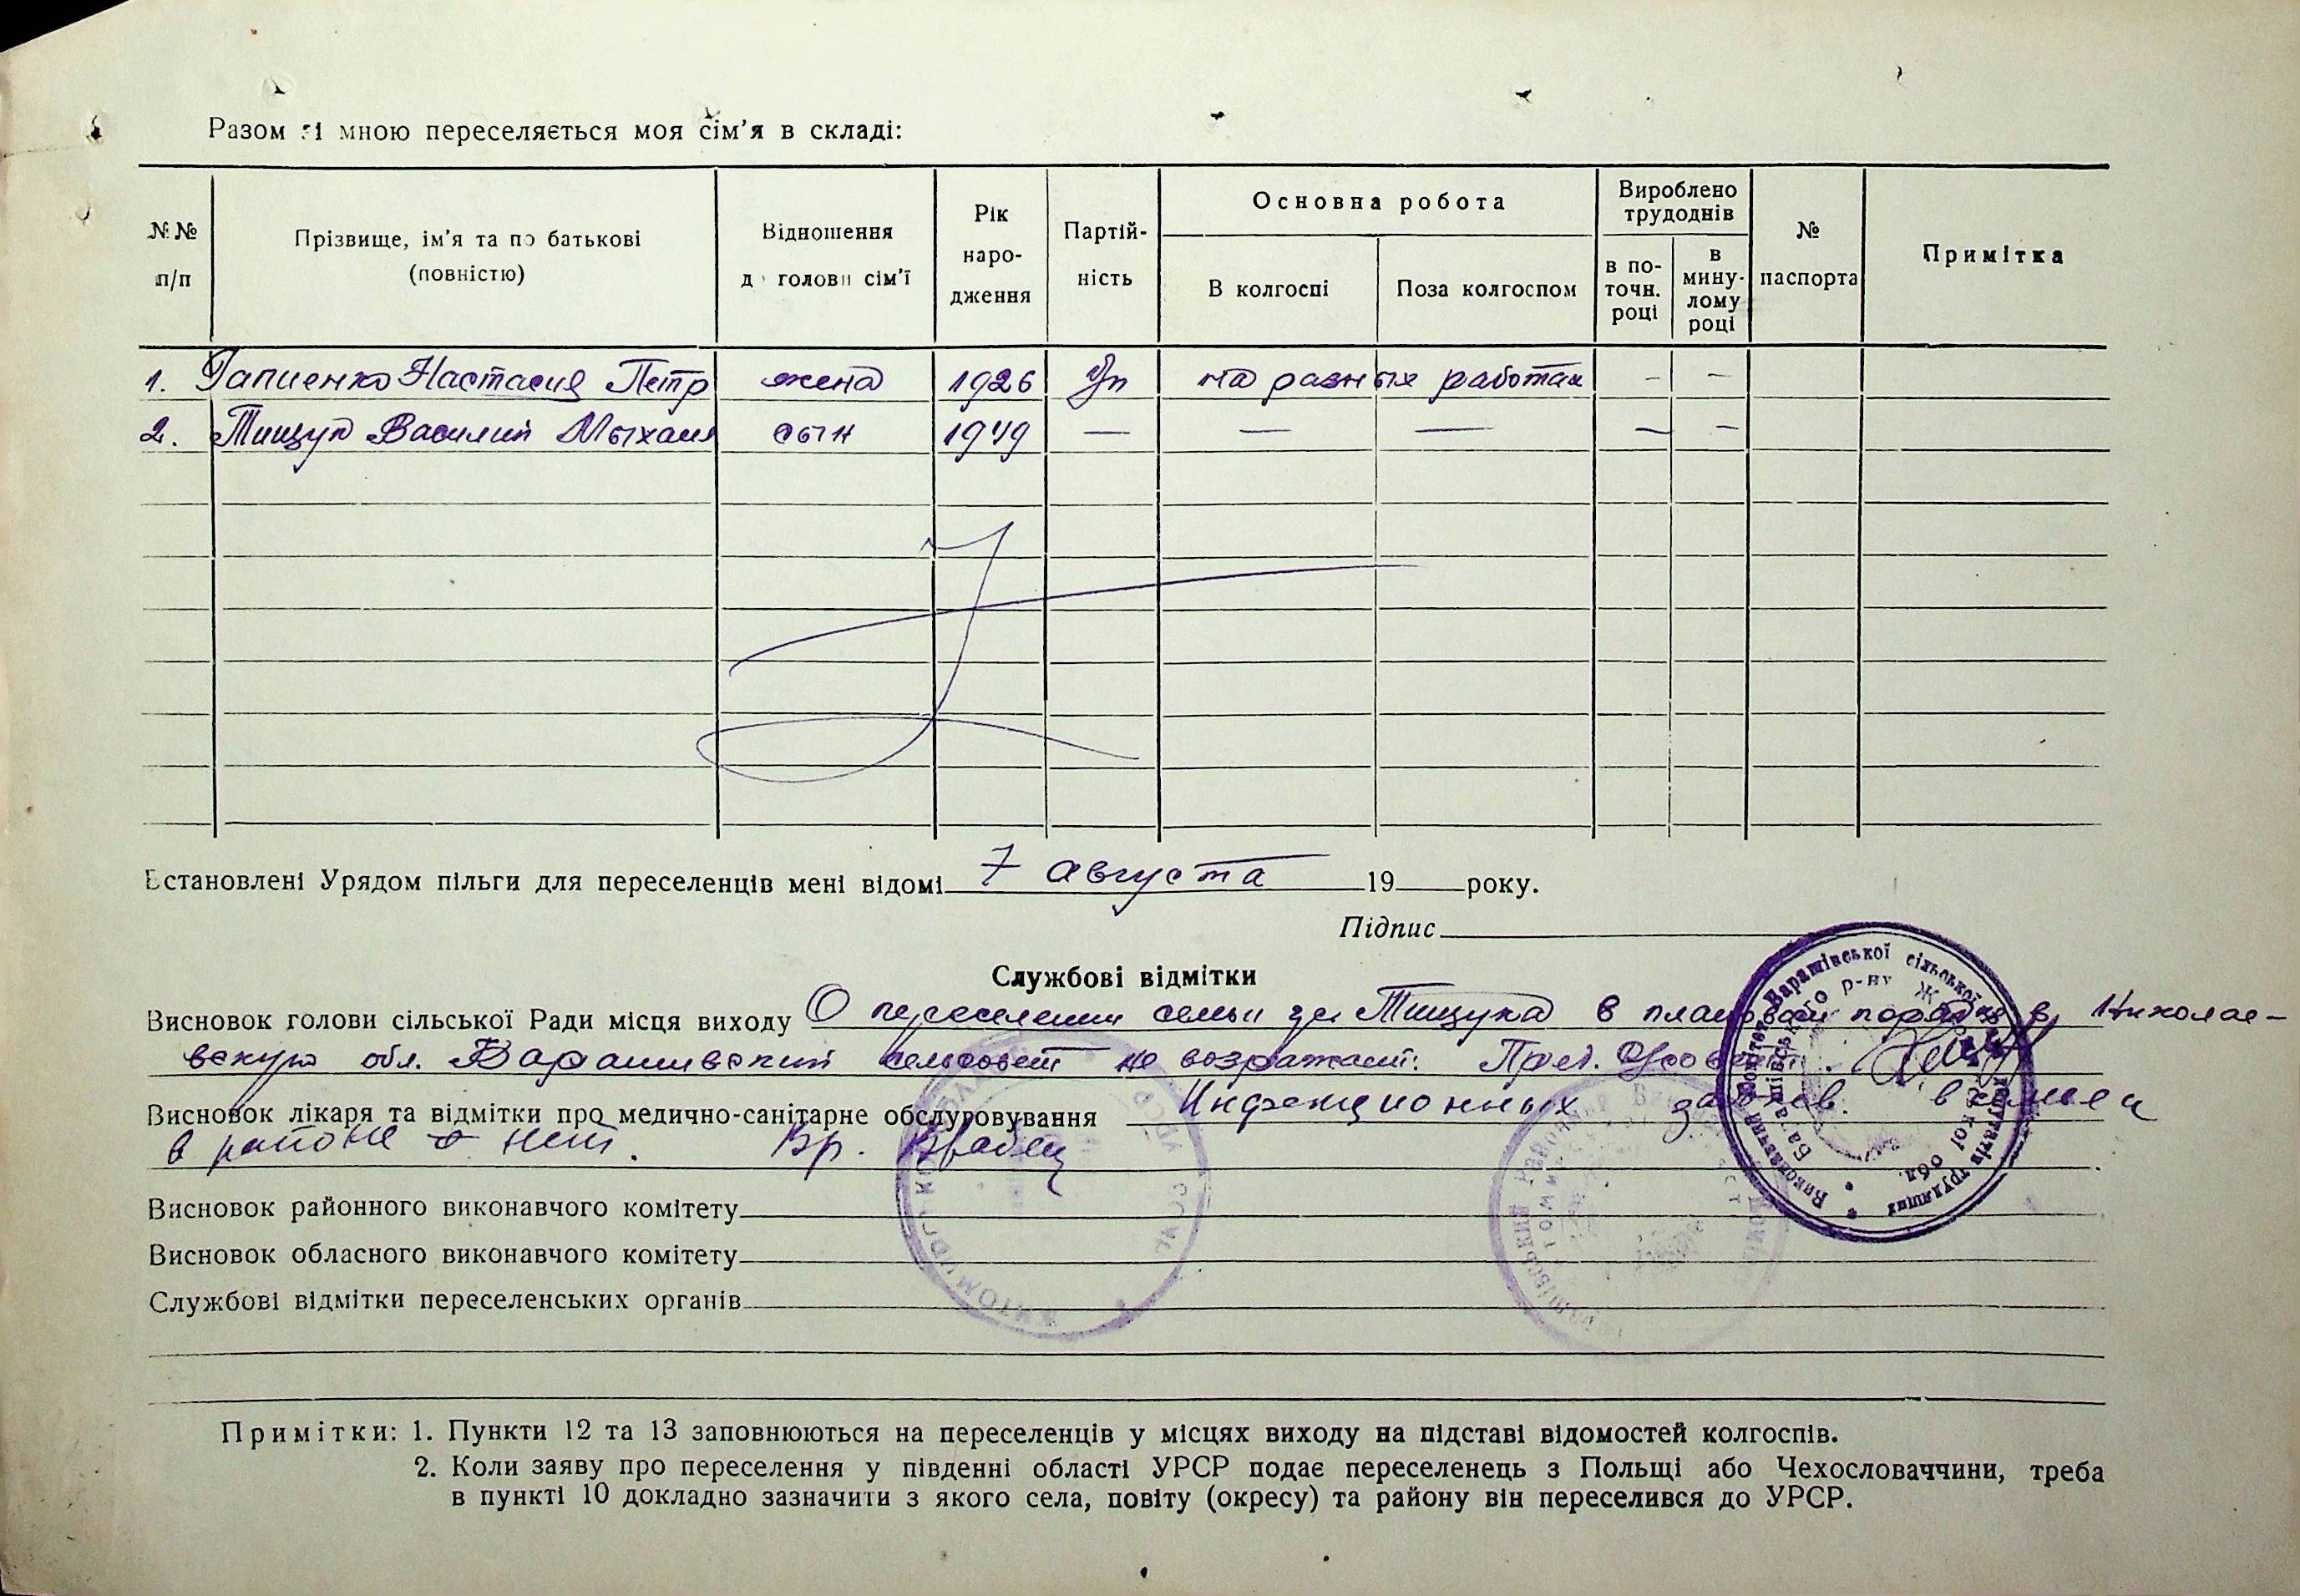 Разом зі мною переселяється моя сім’я в складі:
№№ п/п
Прізвище, ім’я та по батькові (повністю)
Відношення до голови сім’ї
Рік народження
Партійність
Основна робота
В колгоспі
Поза колгоспом
Вироблено трудоднів
в поточн. році
в минулому році
№ паспорта
Примітка
1. Гапиенко Настасия Петр жена 1926 на разных работах — —
2. Тищук Василий Мыхаил сын 1949 — — — — —
Встановлені Урядом пільги для переселенців мені відомі 7 августа 19 року.
Підпис
Службові відмітки
Висновок голови сільської Ради місця виходу О переселении семьи Тищука в плановом порядке в Николае-
вскую обл. Барашивский сельсовет не возражает:
Висновок лікаря та відмітки про медично-санітарне обслуговування Инфекционных в семье и
в районе нет. Вр.
Висновок районного виконавчого комітету
Висновок обласного виконавчого комітету
Службові відмітки переселенських органів
Примітки: 1. Пункти 12 та 13 заповнюються на переселенців у місцях виходу на підставі відомостей колгоспів.
2. Коли заяву про переселення у південні області УРСР подає переселенець з Польщі або Чехословаччини, треба
в пункті 10 докладно зазначити з якого села, повіту (окресу) та району він переселився до УРСР.